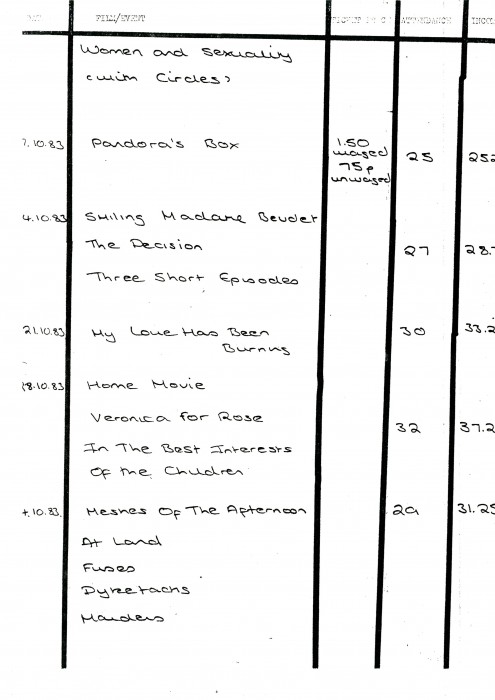 FILM/EVENT ATTENDANCE
Women and Sexuality
(with Circles)
7.10.83 Pandora's Box 1.50 waged 75p unwaged 25 252
4.10.83 Smiling Madame Beudet
The Decision 27 28.7
Three Short Episodes
21.10.83 My Love Has Been 30 33.2
Burning
28.10.83 Home Movie
Veronica for Rose 32 37.2
In The Best Interests
Of the Children
4.10.83. Meshes Of The Afternoon 29 31.25
At Land
Fuses
Dyketactics
Maidens